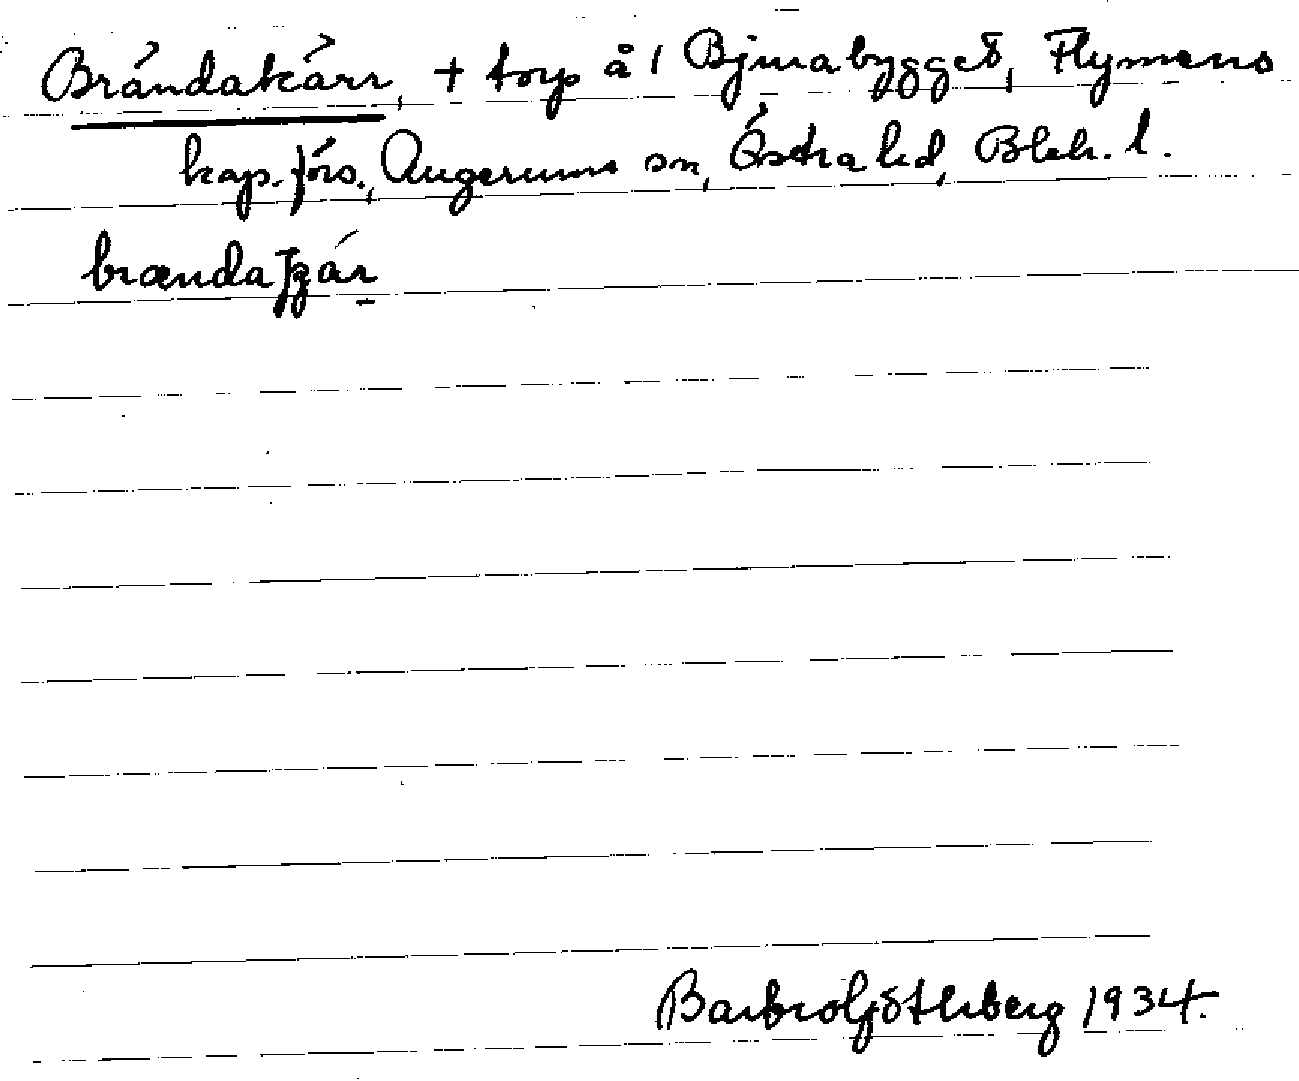 Brändakärr, + torp å 1 Bjurabygget, Flymens
kap. förs., Augerums sn, Östra hd, Blek. l.
brænda
Barbro Götherberg 1934.